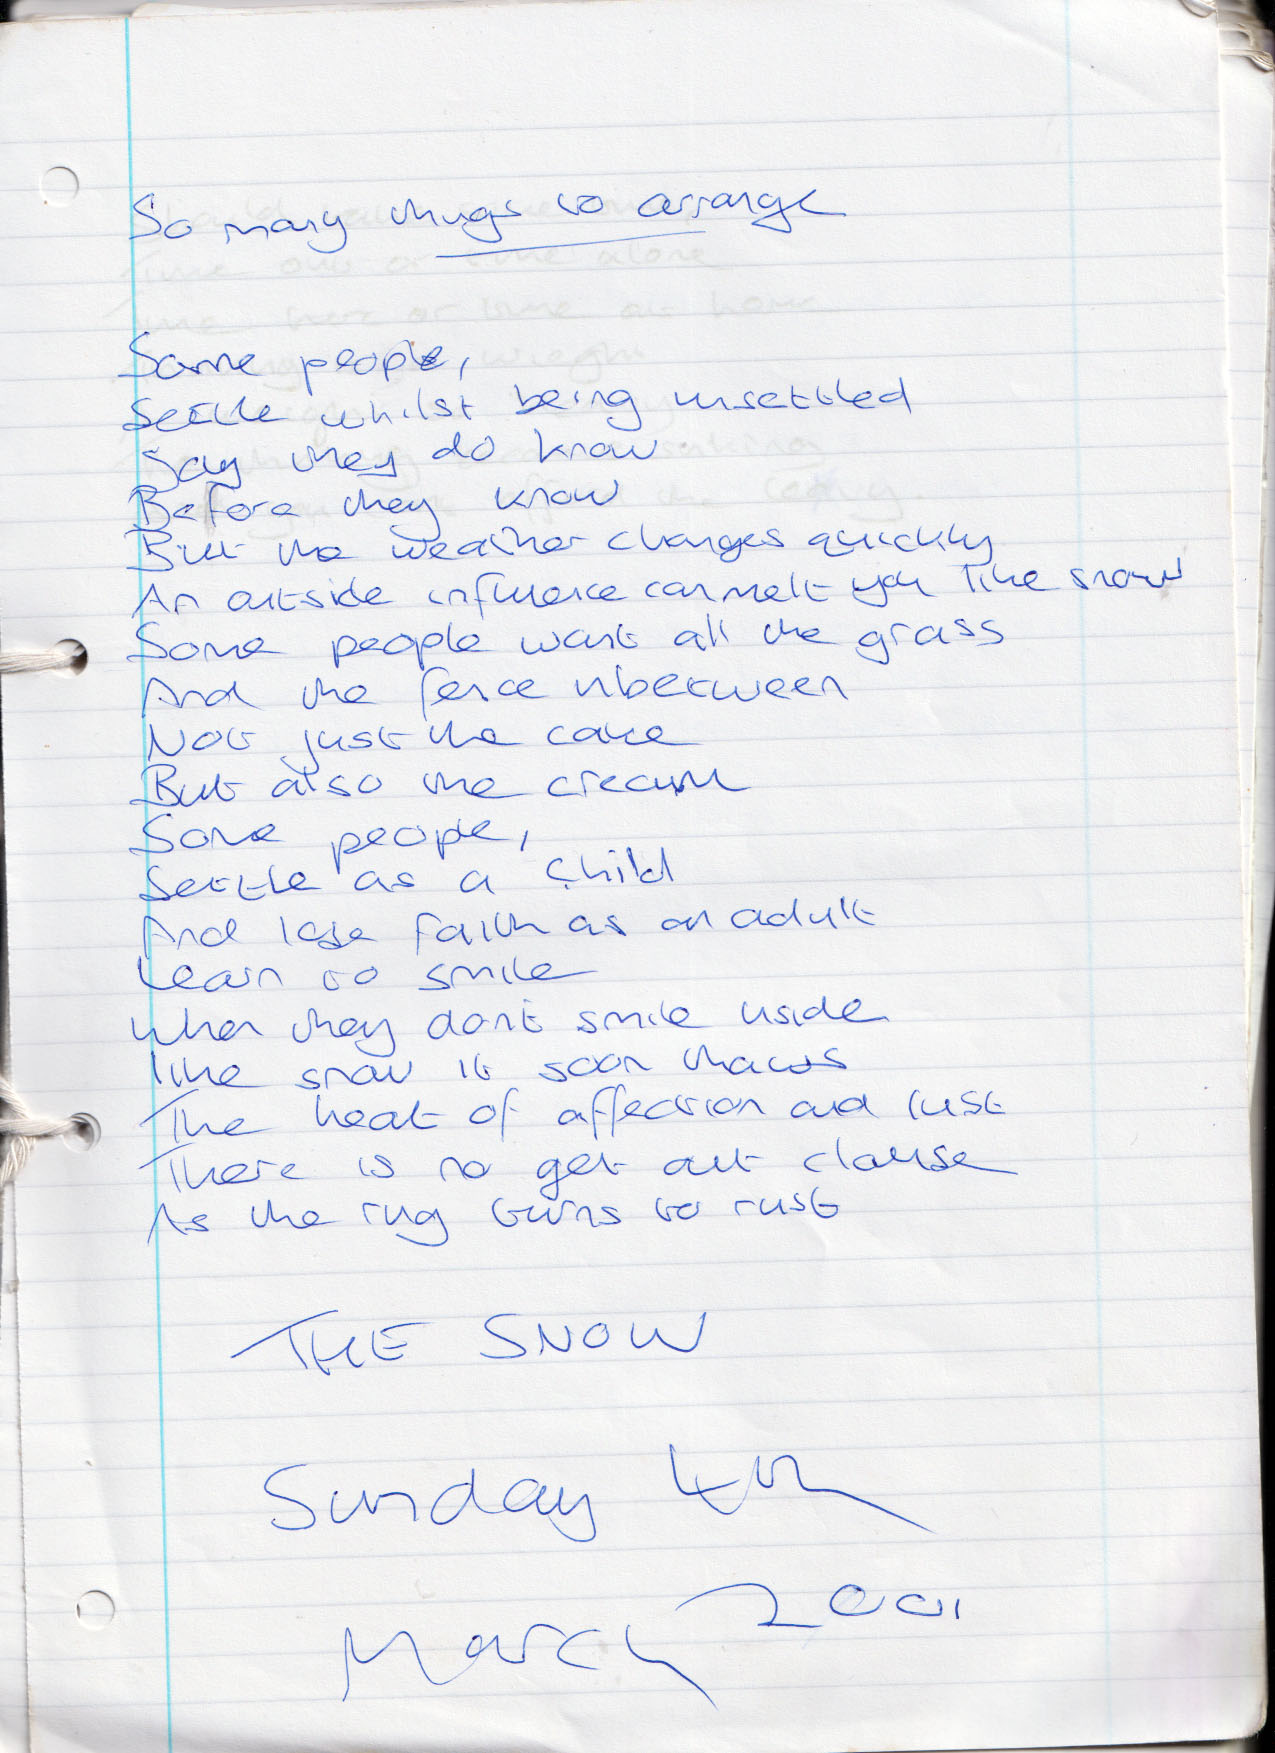 So many things to arrange
Some people,
Settle whilst being unsettled
Say they do know
Before they know
But the weather changes quickly
An outside influence can melt you like snow
Some people want all the grass
And the fence inbetween
Not just the cake
But also the cream
Some people,
Settle as a child
And lose faith as an adult
Learn to smile
When they dont smile inside
like snow it soon thaws
The heat of affection and lust
There is no get out clause
As the ring turns to rust
THE SNOW
Sunday 4th
March 2001